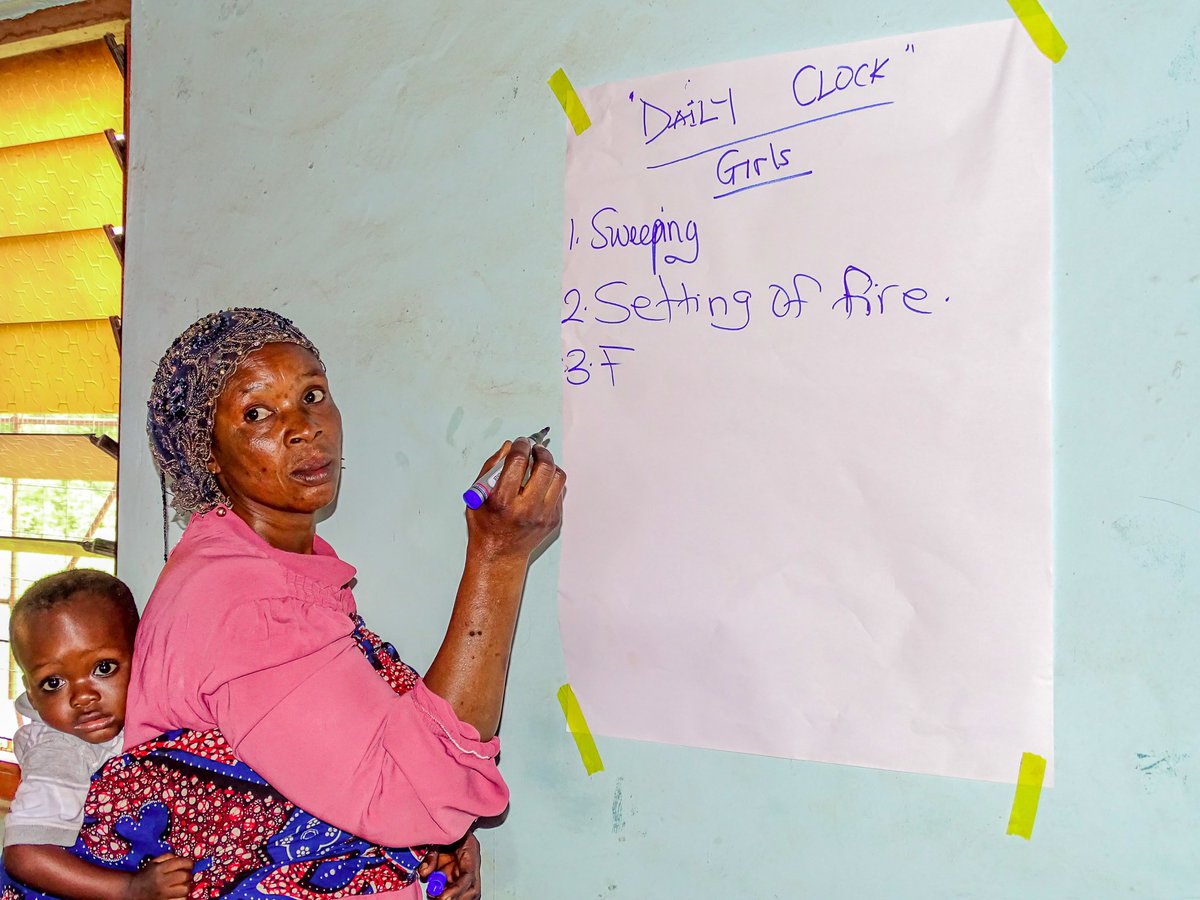 "DAILY CLOCK"
Girls
1. Sweeping
2. Setting of fire.
3. F